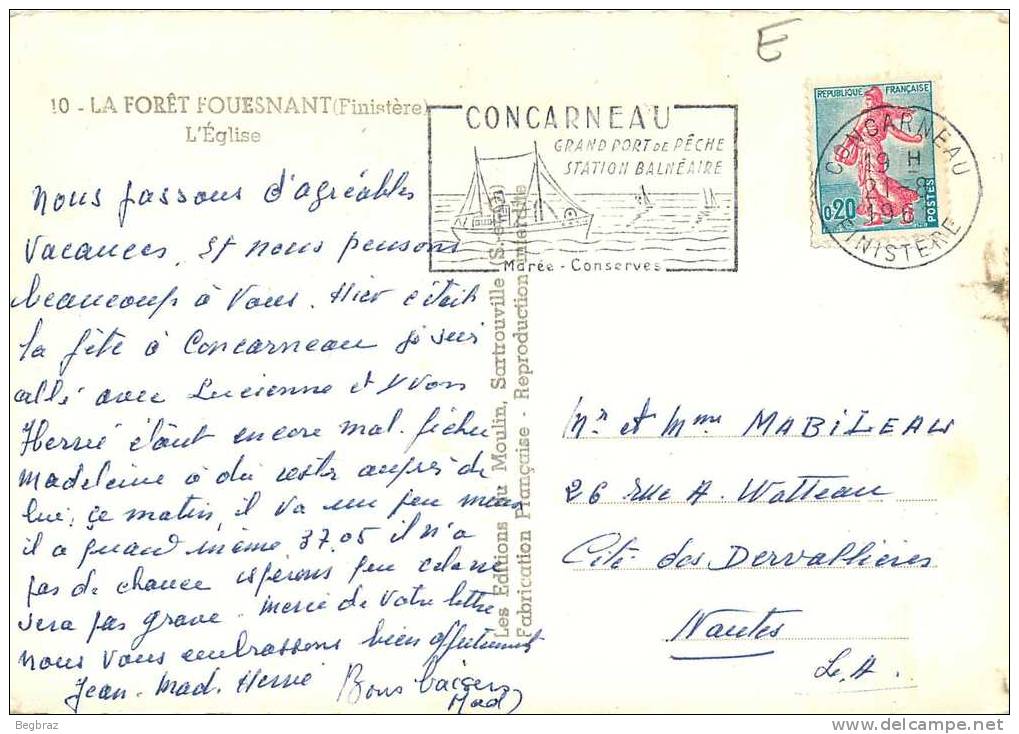 E
10 - LA FORÊT FOUESNANT (Finistère)
L'Église
CONCARNEAU
GRAND PORT DE PÊCHE
STATION BALNÉAIRE
Marée - Conserves
REPUBLIQUE FRANÇAISE
0,20
POSTES
CONCARNEAU
19 H
21 - 8
196
FINISTERE
nous passons d'agréables
vacances. Et nous pensons
beaucoup à vous. Hier c'était
la fête à Concarneau je suis
allé avec Lucienne et Yvon
Hervé étant encore mal fichu
Madeleine a du rester auprès de
lui, ce matin, il va un peu mieux
il a quand même 37.05 il n'a
pas de chance espérons que cela ne
sera pas grave. merci de votre lettre
nous vous embrassons bien affectueusement
Jean. Mad. Hervé
Bons baisers
Mad
Les Editions du Moulin, Sartrouville (S.-et-O.)
Fabrication Française - Reproduction interdite
Mr et Mme MABILEAU
26 rue A. Watteau
Cité des Dervallières
Nantes
L. A.
Begbraz
www.delcampe.net